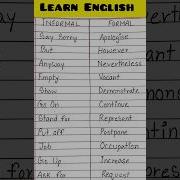 LEARN ENGLISH
INFORMAL FORMAL
Say Sorry Apologise
But However
Anyway Nevertheless
Empty Vacant
Show Demonstrate
Go On Continue
Stand for Represent
Put off Postpone
Job Occupation
Go Up Increase
Ask for Request